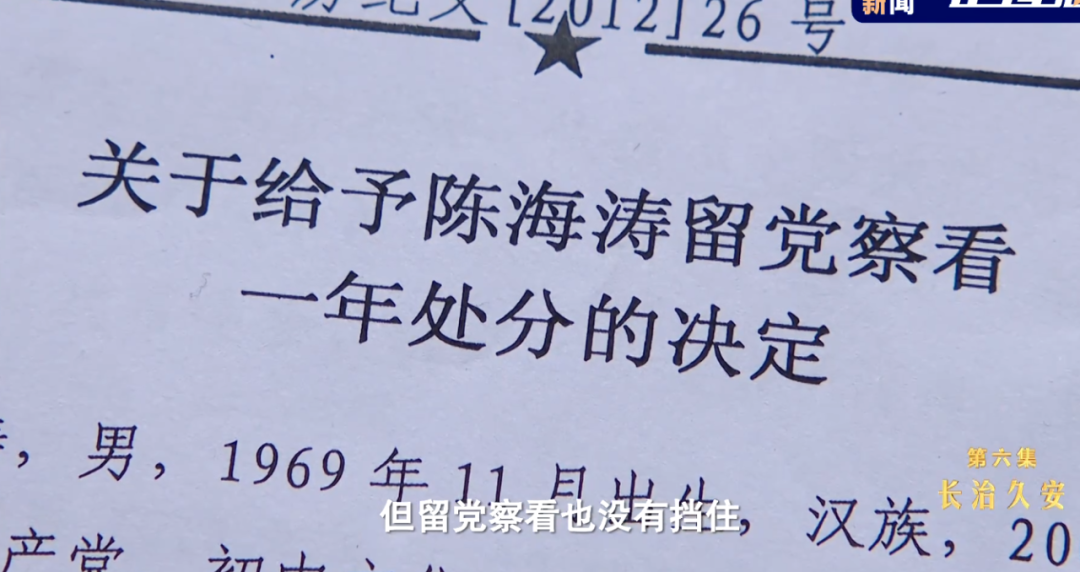 新闻
[2012]26号
关于给予陈海涛留党察看
一年处分的决定
，男，1969年11月出生，汉族，20
但留党察看也没有挡住
第六集
长治久安
产党